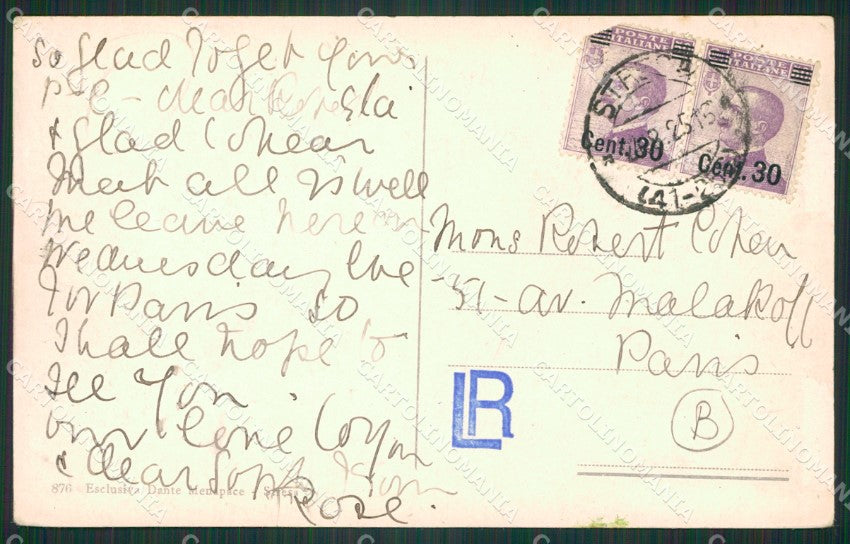 so glad to get your
P-C - dear
& glad to hear
that all is well
We leave here on
Wednesday Eve
for Paris so
I hall hope to
see you
our love to you
& dear from
Rose.
876 Esclusiva Dante Menapace - Stresa
POSTE
ITALIANE
POSTE
ITALIANE
Cent. 30
Cent. 30
STRESA
8.25.15
(41-23)
Mons Robert Cohen
51 - av. Malakoff
Paris
B
LR
CARTOLINOMANIA